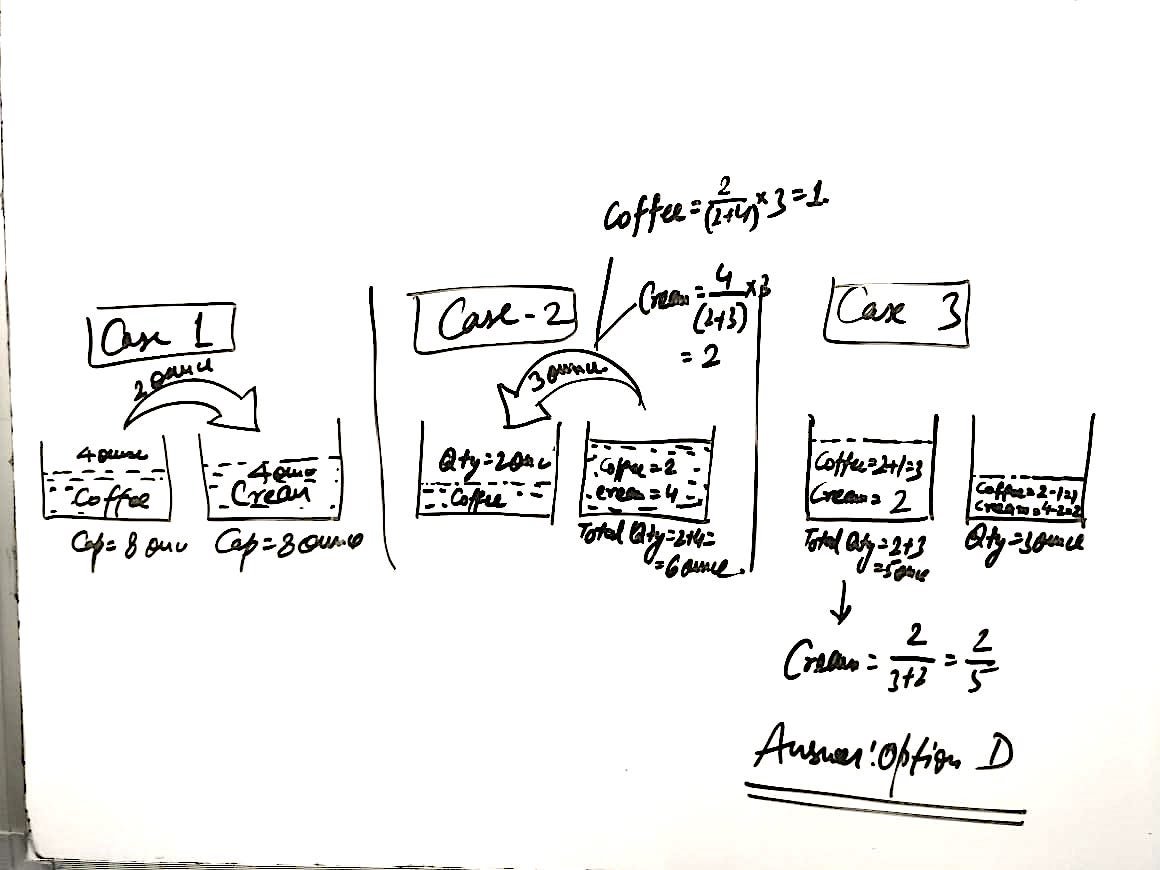 Coffee = 2/(2+4) × 3 = 1.
Cream = 4/(2+3) × 3
= 2
Case 1
2 ounce
4 ounce
Coffee
Cap = 8 ounce
4 ounce
Cream
Cap = 8 ounce
Case - 2
3 ounce
Qty = 2 ounce
Coffee
Coffee = 2
cream = 4
Total Qty = 2+4=
= 6 ounce.
Case 3
Coffee = 2+1=3
Cream = 2
Total Qty = 2+3
= 5 ounce
Coffee = 2-1=1
Cream = 4-2=2
Qty = 3 ounce
Cream = 2/(3+2) = 2/5
Answer: Option D